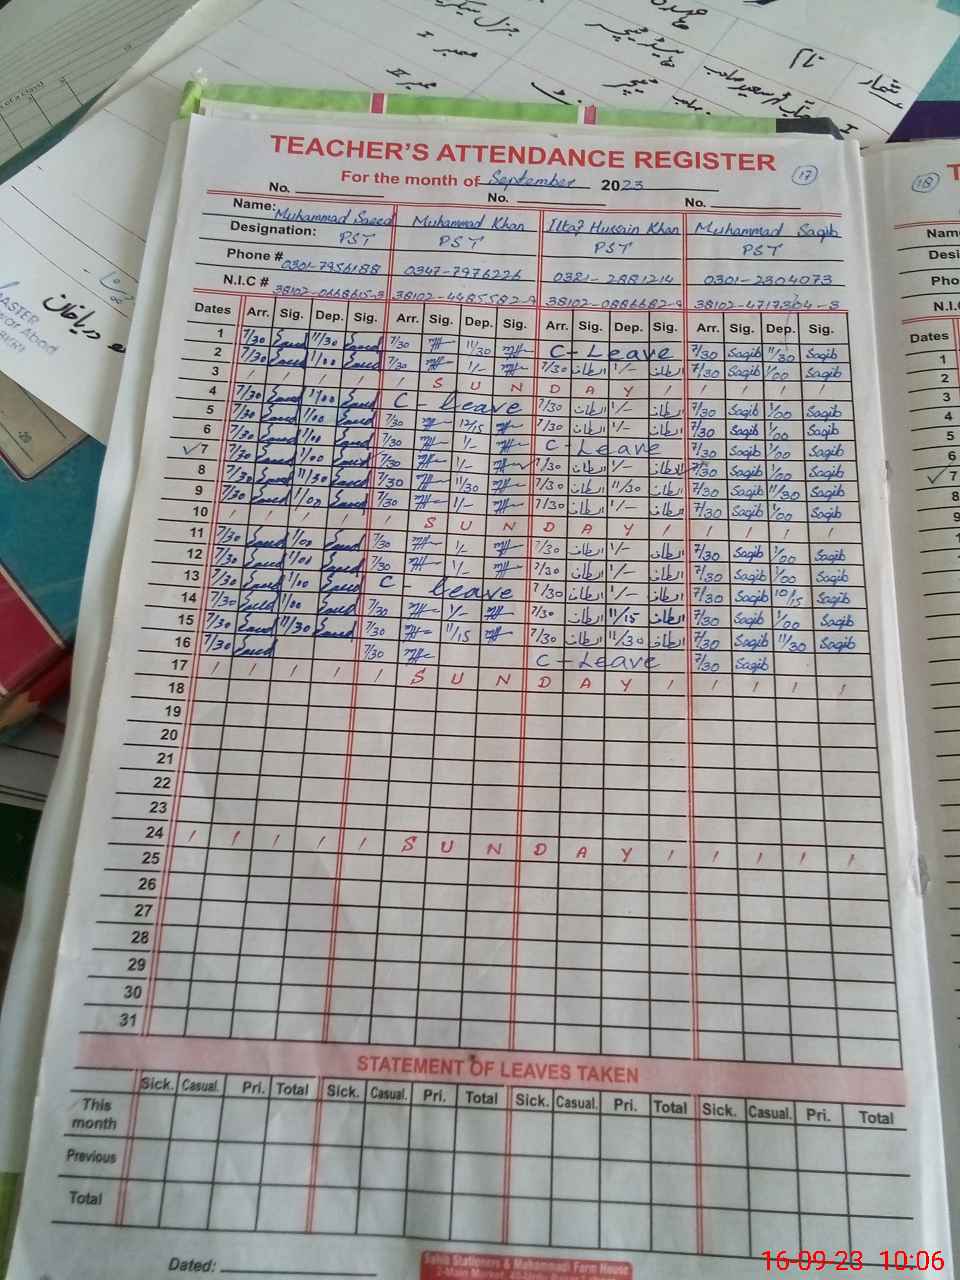 شمار
نام
عہدہ
ہیڈ ٹیچر
جنرل سیکرٹری
ممبر I
ٹیچر
ممبر II
I
دریاخان
TEACHER'S ATTENDANCE REGISTER
17
For the month of September 2023
No. No. No.
Name: Muhammad Saeed Muhammad Khan Hussain Khan Muhammad Saqib
Designation: PST PST PST PST
Phone # 0301-7956188 0347-7976226 0381-2881214 0301-2304073
N.I.C # 38102-0668615-3 38102-4485582-9 38102-0886682-9
Dates Arr. Sig. Dep. Sig. Arr. Sig. Dep. Sig. Arr. Sig. Dep. Sig. Arr. Sig. Dep. Sig.
1 7/30 Saeed 11/30 Saeed 7/30 11/30 C-Leave 7/30 Saqib 11/30 Saqib
2 7/30 Saeed 1/00 Saeed 7/30 1/- 7/30 الطاف 1/- الطاف 7/30 Saqib 1/00 Saqib
3 / / / / / S U N D A Y / / / / /
4 7/30 Saeed 1/00 Saeed C-Leave 7/30 الطاف 1/- الطاف 7/30 Saqib 1/00 Saqib
5 7/30 Saeed 1/00 Saeed 7/30 12/15 7/30 الطاف 1/- الطاف 7/30 Saqib 1/00 Saqib
6 7/30 Saeed 1/00 Saeed 7/30 1/- C-Leave 7/30 Saqib 1/00 Saqib
✓7 7/30 Saeed 1/00 Saeed 7/30 1/- 7/30 الطاف 1/- الطاف 7/30 Saqib 1/00 Saqib
8 7/30 Saeed 11/30 Saeed 7/30 11/30 7/30 الطاف 11/30 الطاف 7/30 Saqib 11/30 Saqib
9 7/30 Saeed 1/00 Saeed 7/30 1/- 7/30 الطاف 1/- الطاف 7/30 Saqib 1/00 Saqib
10 / / / / / S U N D A Y / / / / /
11 7/30 Saeed 1/00 Saeed 7/30 1/- 7/30 الطاف 1/- الطاف 7/30 Saqib 1/00 Saqib
12 7/30 Saeed 1/00 Saeed 7/30 1/- 7/30 الطاف 1/- الطاف 7/30 Saqib 1/00 Saqib
13 7/30 Saeed 1/00 Saeed C-Leave 7/30 الطاف 1/- الطاف 7/30 Saqib 10/15 Saqib
14 7/30 Saeed 1/00 Saeed 7/30 1/- 7/30 الطاف 11/15 الطاف 7/30 Saqib 1/00 Saqib
15 7/30 Saeed 11/30 Saeed 7/30 11/15 7/30 الطاف 11/30 الطاف 7/30 Saqib 11/30 Saqib
16 7/30 Saeed 7/30 C-Leave 7/30 Saqib
17 / / / / / S U N D A Y / / / / /
18
19
20
21
22
23
24 / / / / / S U N D A Y / / / / /
25
26
27
28
29
30
31
STATEMENT OF LEAVES TAKEN
Sick. Casual. Pri. Total Sick. Casual. Pri. Total Sick. Casual. Pri. Total Sick. Casual. Pri. Total
This month
Previous
Total
Dated:
Sahib Stationers & Muhammadi Farm House
18
Name
Desi
Pho
N.I.C
Dates
1
2
3
4
5
6
✓7
8
9
10
16-09-23 10:06